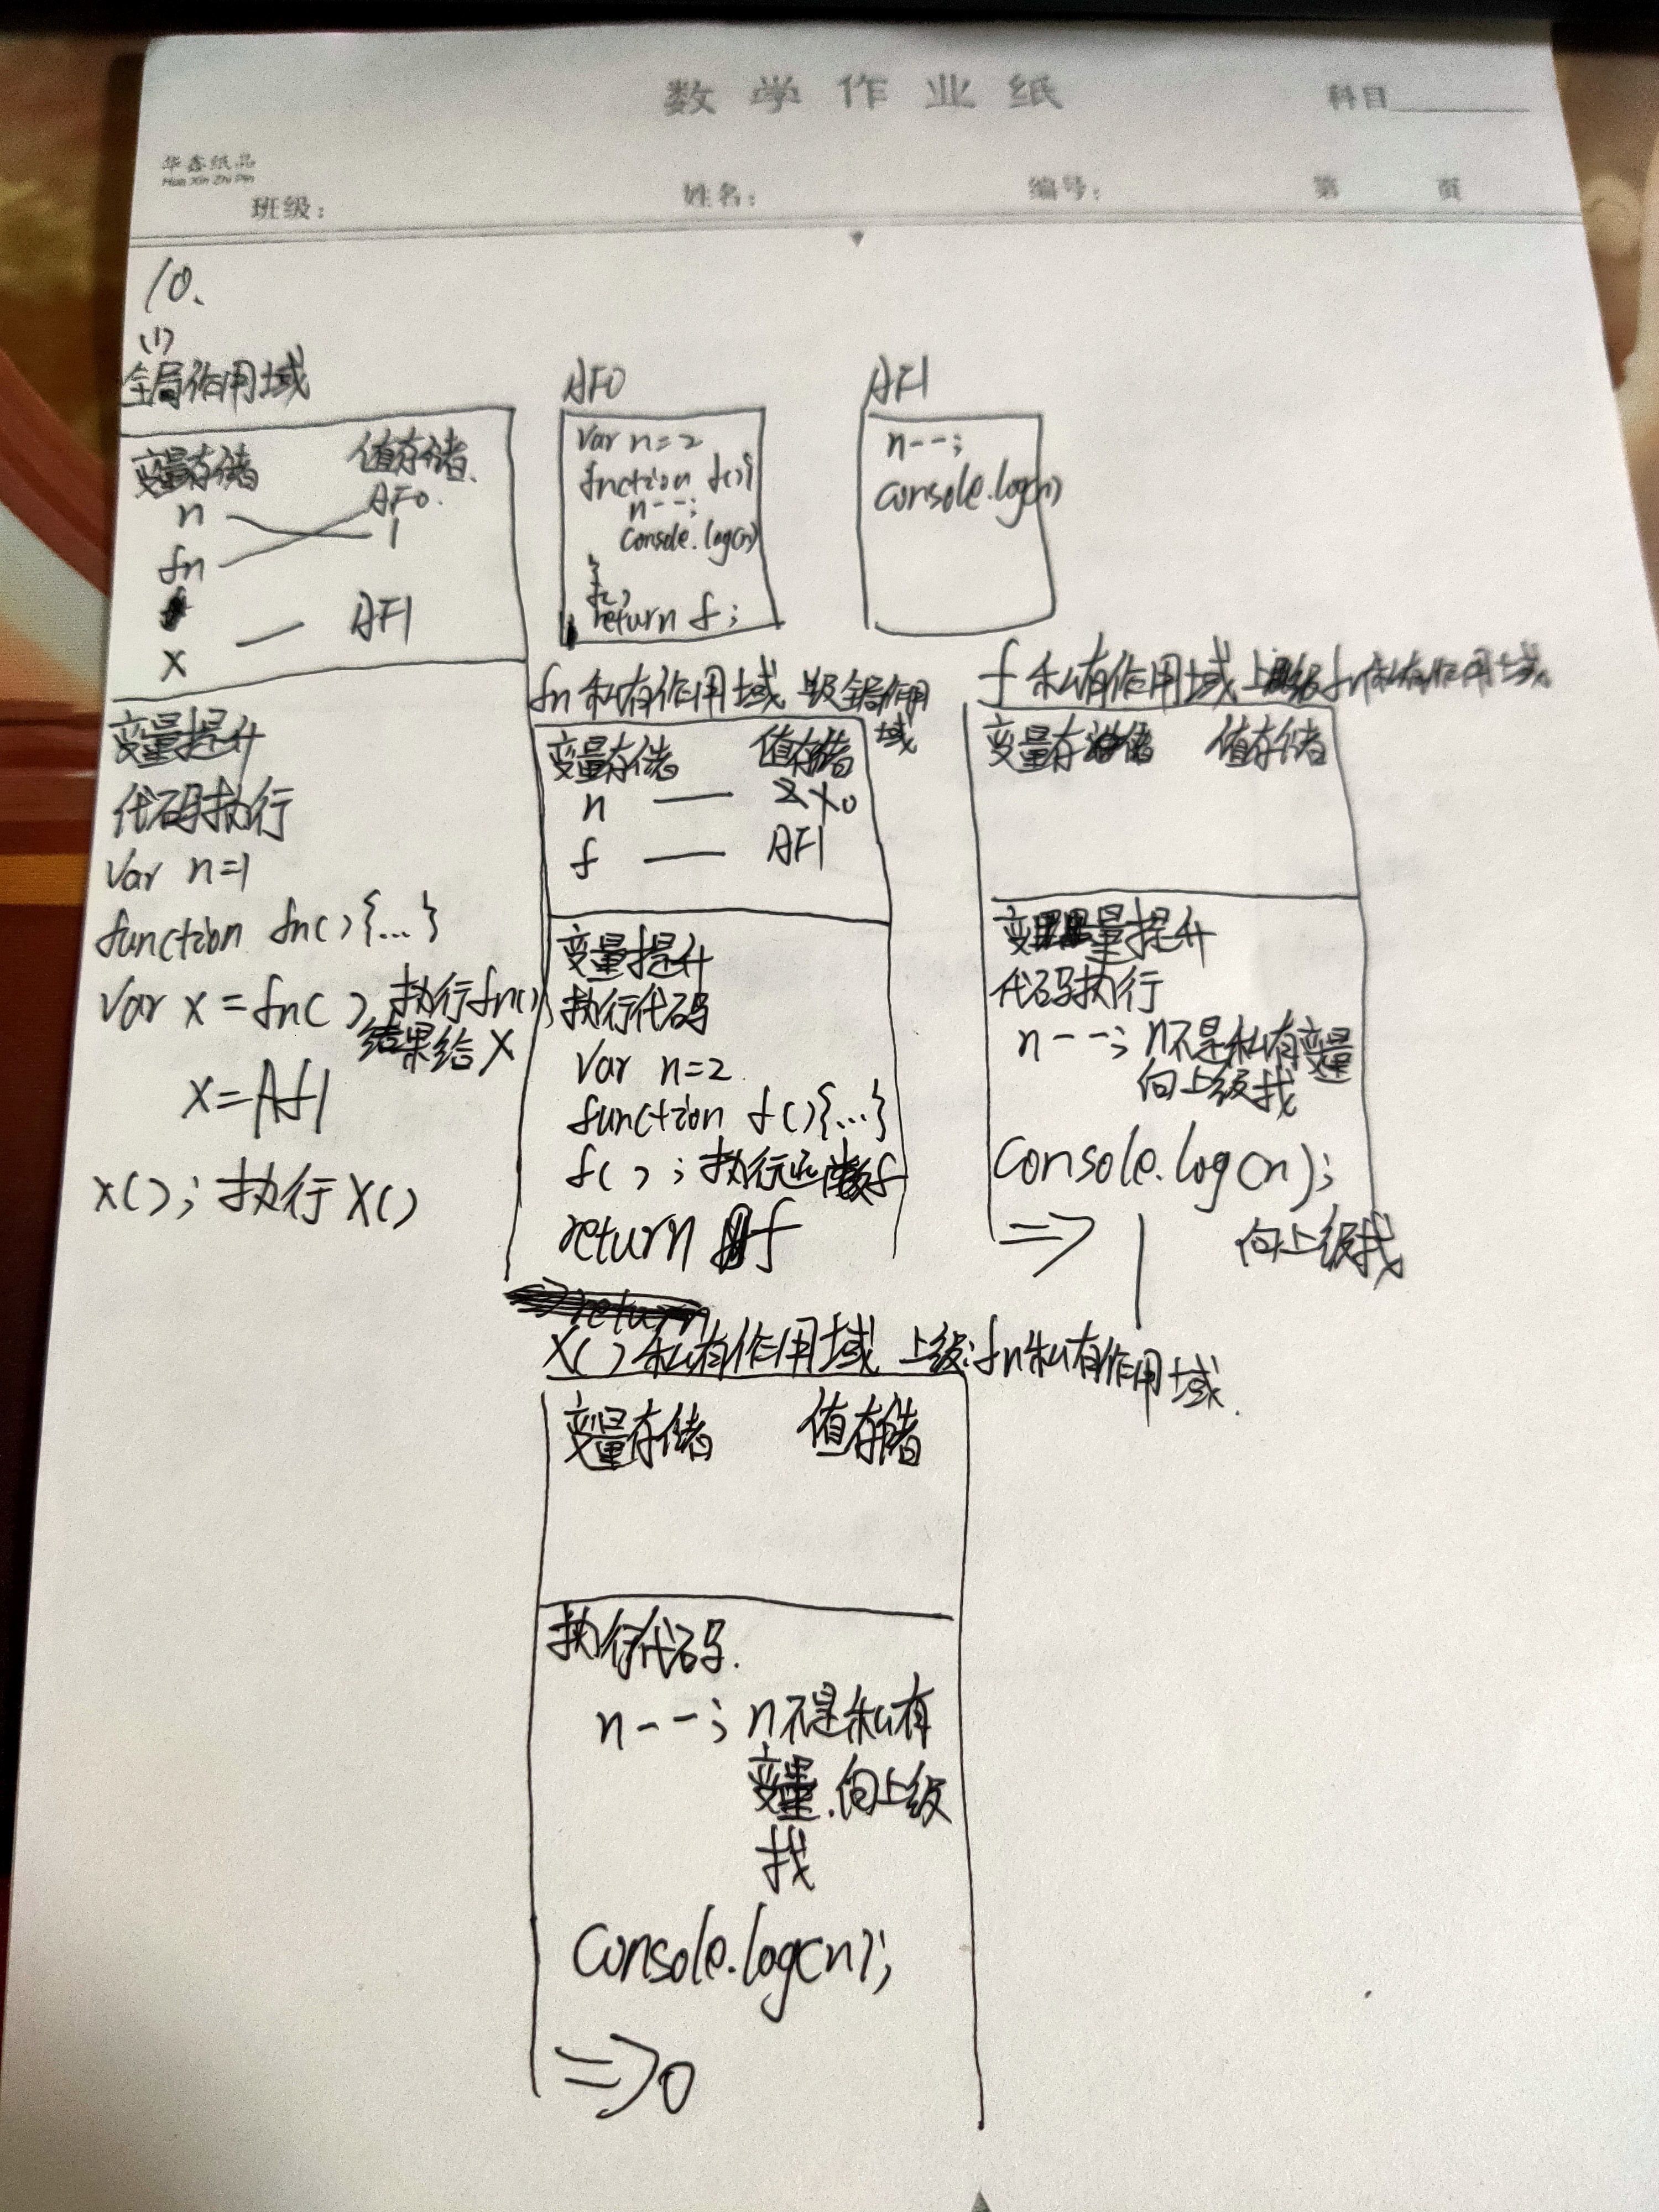 数学作业纸
科目
华鑫纸品
Hua Xin Zhi Pin
班级：
姓名：
编号：
第 页
10、
(1)
全局作用域
变量存储 值存储
n AF0
fn 1
x AF1
变量提升
代码执行
var n=1
function fn(){...}
var x=fn() 执行fn()
结果给X
x=Af1
x(); 执行x()
AF0
var n=2
function f(){
n--;
console.log(n)
}
f()
return f;
AF1
n--;
console.log(n)
fn私有作用域 上级全局作用
域
变量存储 值存储
n 2 1 0
f AF1
变量提升
执行代码
var n=2
function f(){...}
f(); 执行函数f
return f
f私有作用域 上级fn私有作用域
变量存储 值存储
变量提升
代码执行
n--; n不是私有变量
向上级找
console.log(n);
=> 1 向上级找
return
x()私有作用域 上级:fn私有作用域.
变量存储 值存储
执行代码.
n--; n不是私有
变量.向上级
找
console.log(n);
=>0